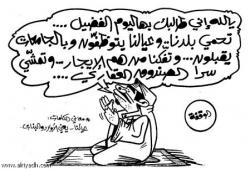 ياالله اني طالبك بهاليوم الفضيل ....
تحمي بلدنا .. وعيالنا يتوظفون وبالجامعات
يقبلون .. وتفكنا من هم الإيجار .. وتمشي
سرا الصندوق العقاري ....
www.alriyadh.com